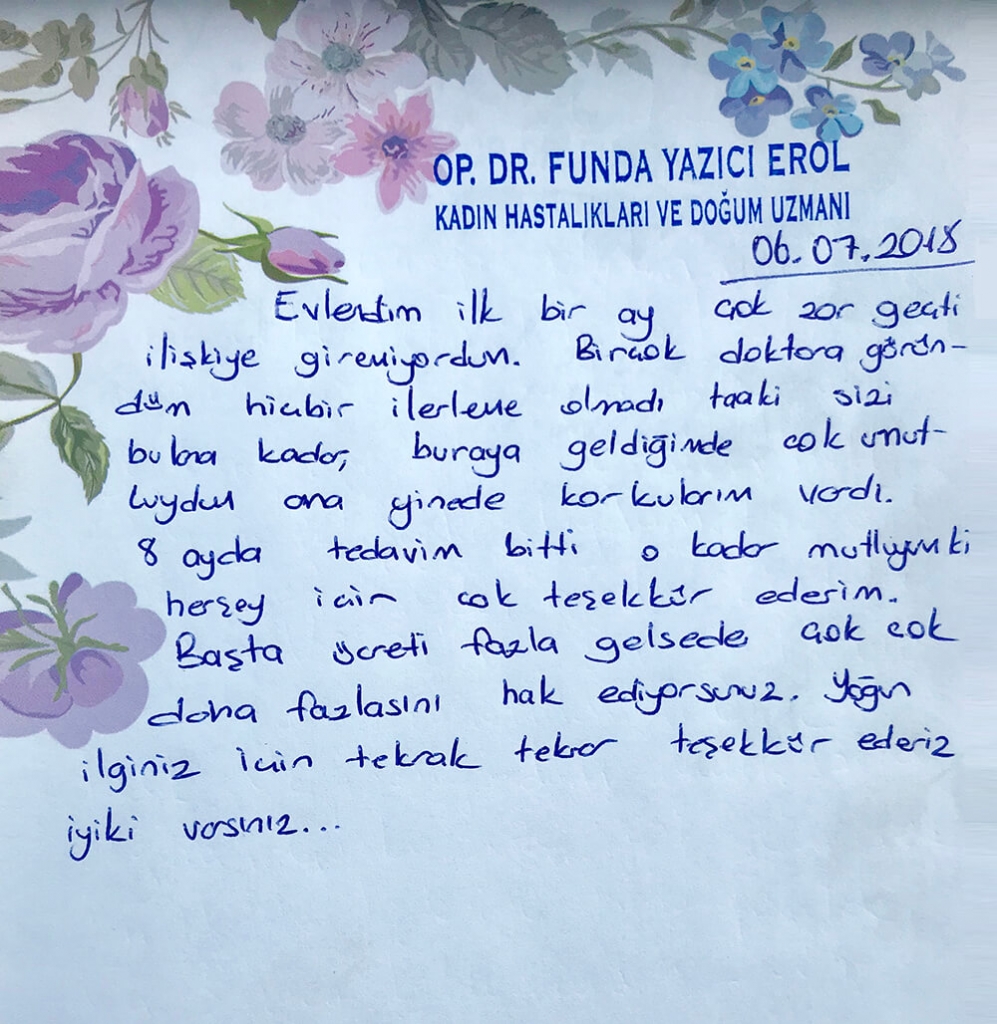 OP. DR. FUNDA YAZICI EROL
KADIN HASTALIKLARI VE DOĞUM UZMANI
06.07.2018
Evlendim ilk bir ay çok zor geçti
ilişkiye giremiyordum. Birçok doktora görün-
düm hiçbir ilerleme olmadı taaki sizi
bulana kadar, buraya geldiğimde çok umut-
luydum ama yinede korkularım vardı.
8 ayda tedavim bitti o kadar mutluyumki
herşey için çok teşekkür ederim.
Başta ücreti fazla gelsede çok çok
daha fazlasını hak ediyorsunuz. Yoğun
ilginiz için tekrak tekrar teşekkür ederiz
iyiki varsınız...